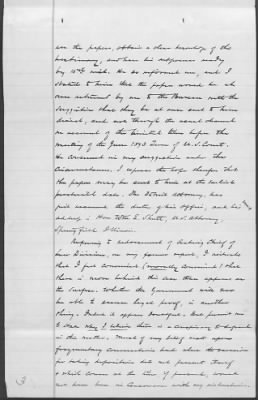 see the papers, obtain a clear knowledge of the
testimony, and have his response ready
by 15th inst. He so informed me, and I
stated to him that the papers would be at
once returned by me to the Bureau with the
suggestion that they be at once sent to him
direct, and not through the usual channel
on account of the limited time before the
meeting of the June 1893 Term of U.S. Court.
He concurred in my suggestion under the
circumstances. I express the hope therefore that
the papers may be sent to him at the earliest
practicable date. The District Attorney, has
just assumed the duties of his office, and his
address is Hon. Wm. E. Shutt, U.S. Attorney,
Springfield Illinois.
Referring to endorsement of Acting Chief of
Law Division, on my former report, I
that I feel convinced (morally convinced) that
there is more behind this case than appears on
the surface. Whether the Government will ever
be able to secure legal proof, is another
thing. Indeed it appears doubtful. But permit me
to state why I believe there is a conspiracy to defraud
in the matter. Much of my belief rest upon
fragmentary conversations had when the occasion
for taking depositions did not present itself
& which even at the time if pursued, would
not have been in consonance with my instructions.